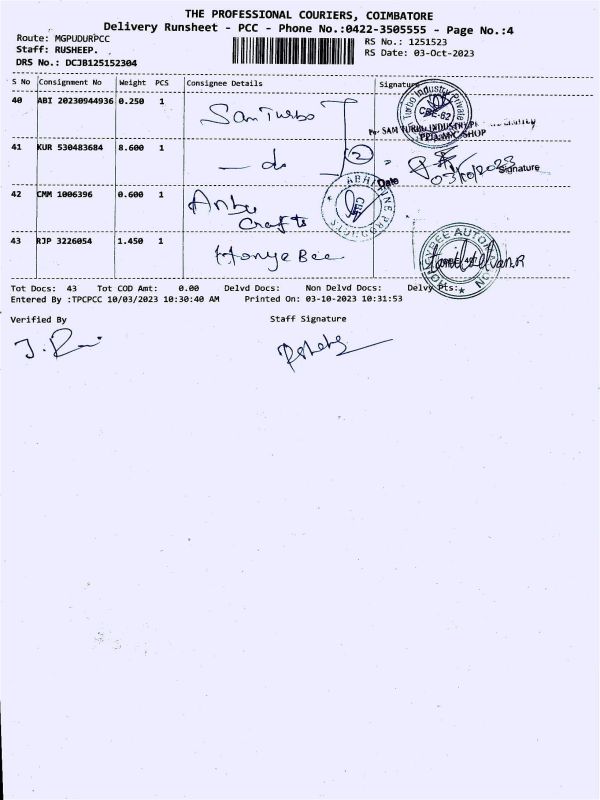 THE PROFESSIONAL COURIERS, COIMBATORE
Delivery Runsheet - PCC - Phone No.:0422-3505555 - Page No.:4
Route: MGPUDURPCC
RS No.: 1251523
Staff: RUSHEEP.
RS Date: 03-Oct-2023
DRS No.: DCJB125152304
S No Consignment No Weight PCS Consignee Details Signature
40 ABI 20230944936 0.250 1 Sam Turbo
Turbo Industry Private
CBE-62
For SAM TURBO INDUSTRY
41 KUR 530483684 8.600 1 - do 2 "
03/10/2023
Date Signature
42 CMM 1006396 0.600 1 Anbu
Crafts
43 RJP 3226054 1.450 1 Honye Bee
Tot Docs: 43 Tot COD Amt: 0.00 Delvd Docs: Non Delvd Docs: Delvy Pts:
Entered By :TPCPCC 10/03/2023 10:30:40 AM Printed On: 03-10-2023 10:31:53
Verified By Staff Signature